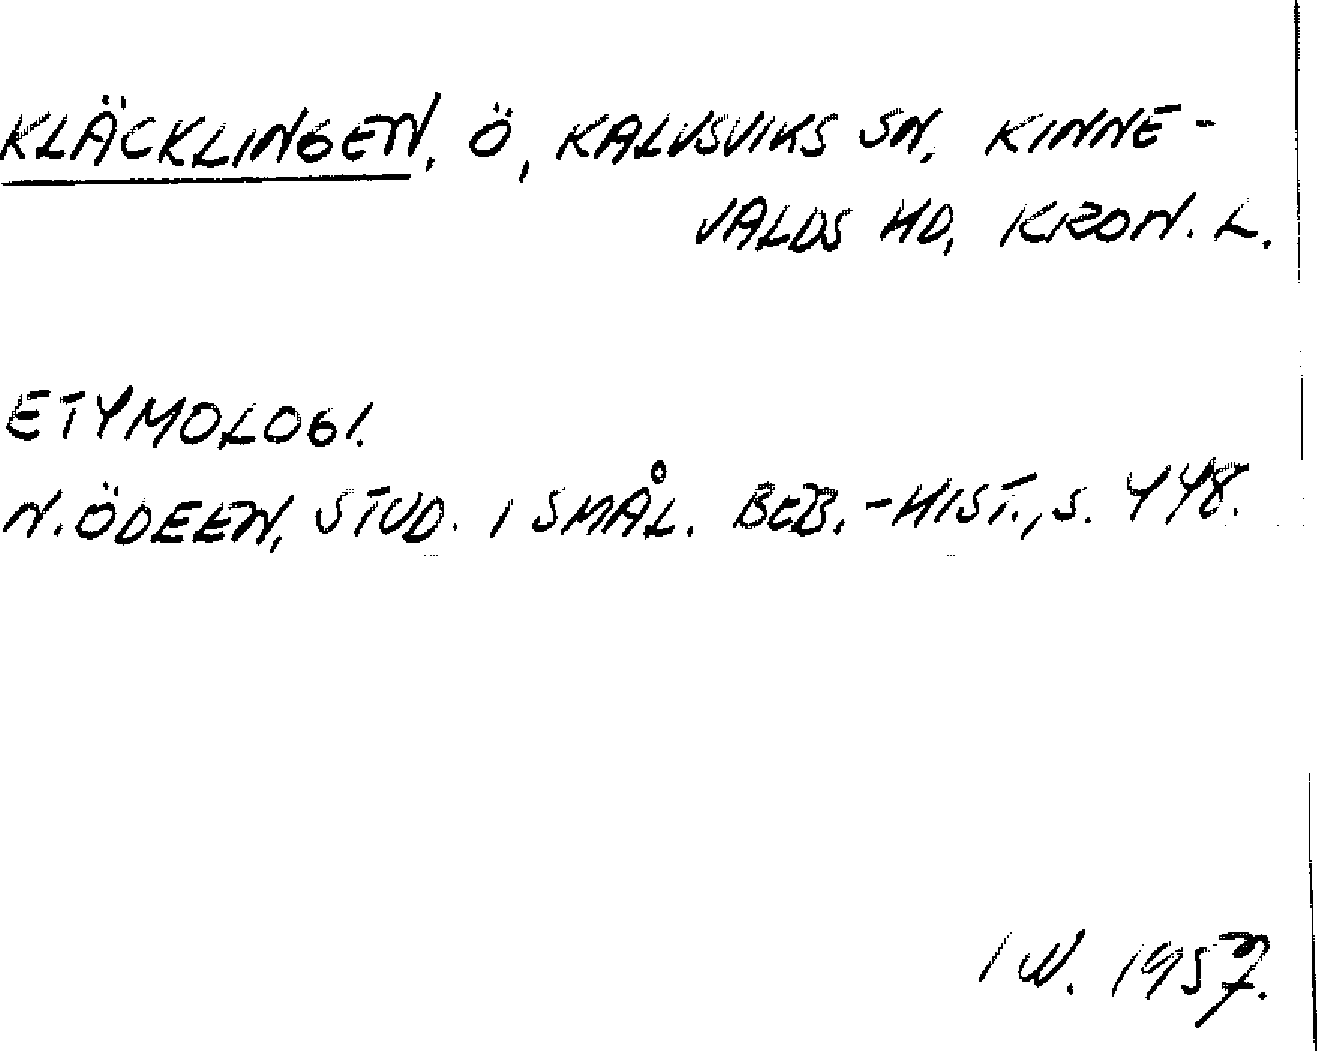 KLÄCKLINGEN, Ö, KALVSVIKS SN, KINNE-
VALDS HD, KRON. L.
ETYMOLOGI.
N. ÖDEEN, STUD. I SMÅL. BEB.-HIST., S. 448.
IW. 1957.